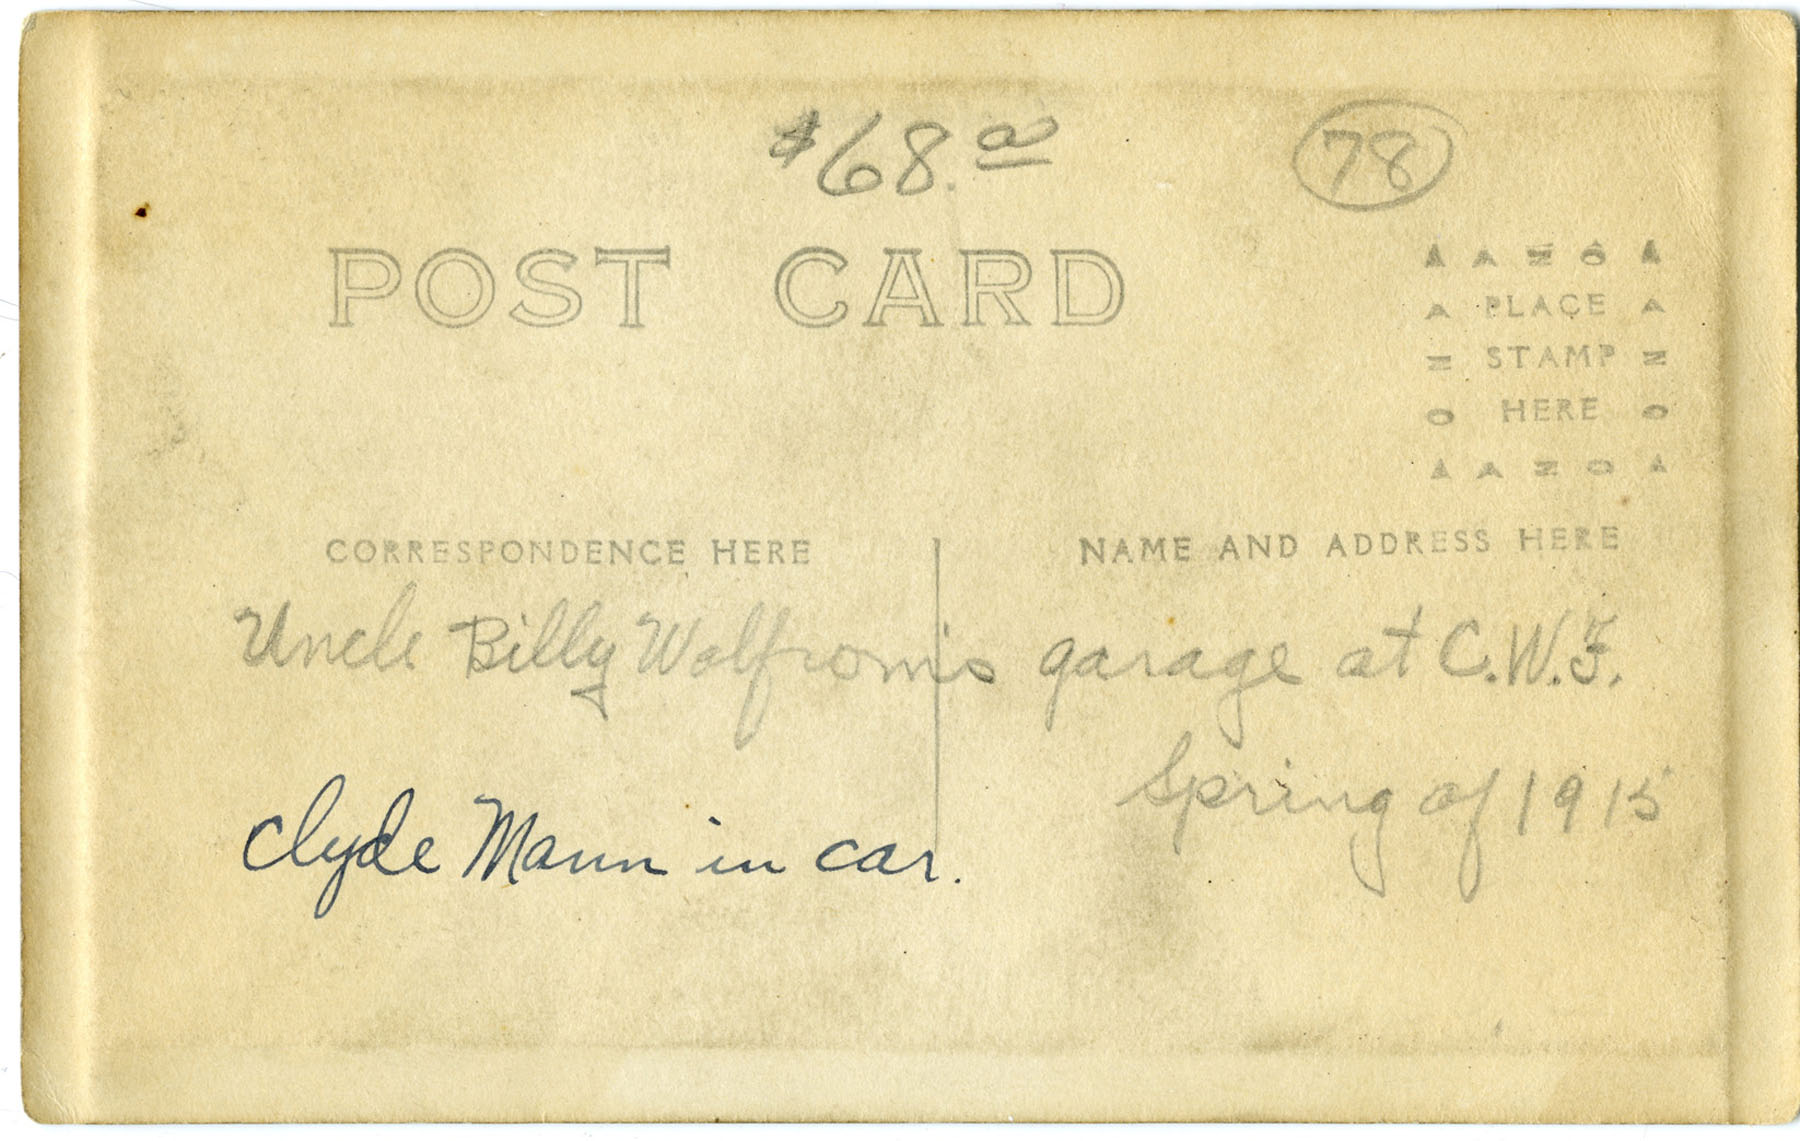 $68.00
78
POST CARD
A Z O
PLACE
STAMP
HERE
CORRESPONDENCE HERE
NAME AND ADDRESS HERE
Uncle Billy Wolfrom's garage at C.W.F.
Spring of 1915
Clyde Mann in car.